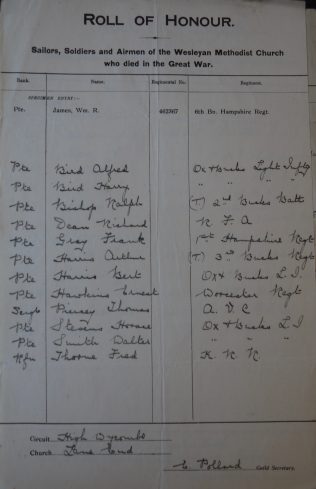 ROLL OF HONOUR.
Sailors, Soldiers and Airmen of the Wesleyan Methodist Church
who died in the Great War.
Rank. Name. Regimental No. Regiment.
SPECIMEN ENTRY:—
Pte. James, Wm. R. 462967 6th Bn. Hampshire Regt.
Pte Bird Alfred Ox & Bucks Light Infty
Pte Bird Harry " " "
Pte Bishop Ralph (T) 2nd Bucks Batt
Pte Dean Richard R. F. A
Pte Gray Frank 1st Hampshire Regt
Pte Harris Arthur (T) 3rd Bucks Regt
Pte Harris Bert Ox & Bucks L. I
Pte Hawkins Ernest Worcester Regt
Sergt Thomas A. V. C
Pte Stevens Horace Ox & Bucks L. I
Pte Smith Walter " "
Rfn Thorne Fred K. R. R
Circuit High Wycombe
Church Lane End
Pollard Guild Secretary.